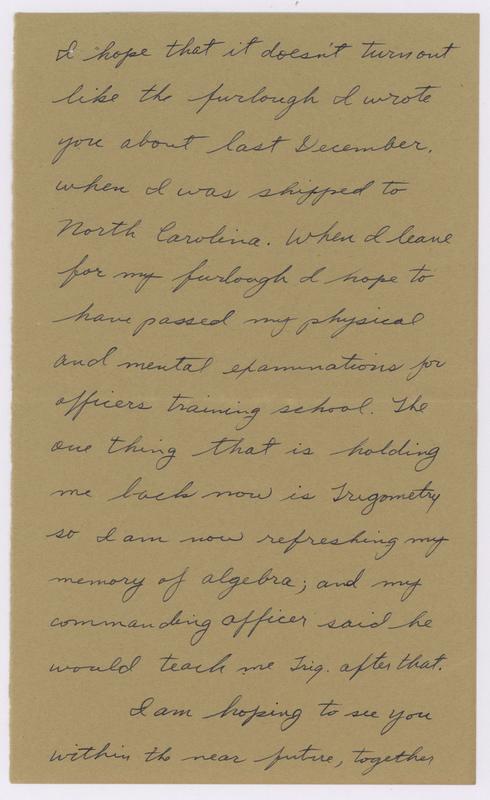 I hope that it doesn't turn out
like the furlough I wrote
you about last December,
when I was shipped to
North Carolina. When I leave
for my furlough I hope to
have passed my physical
and mental examinations for
officers training school. The
one thing that is holding
me back now is Trigometry
so I am now refreshing my
memory of algebra; and my
commanding officer said he
would teach me Trig. after that.
I am hoping to see you
within the near future, together